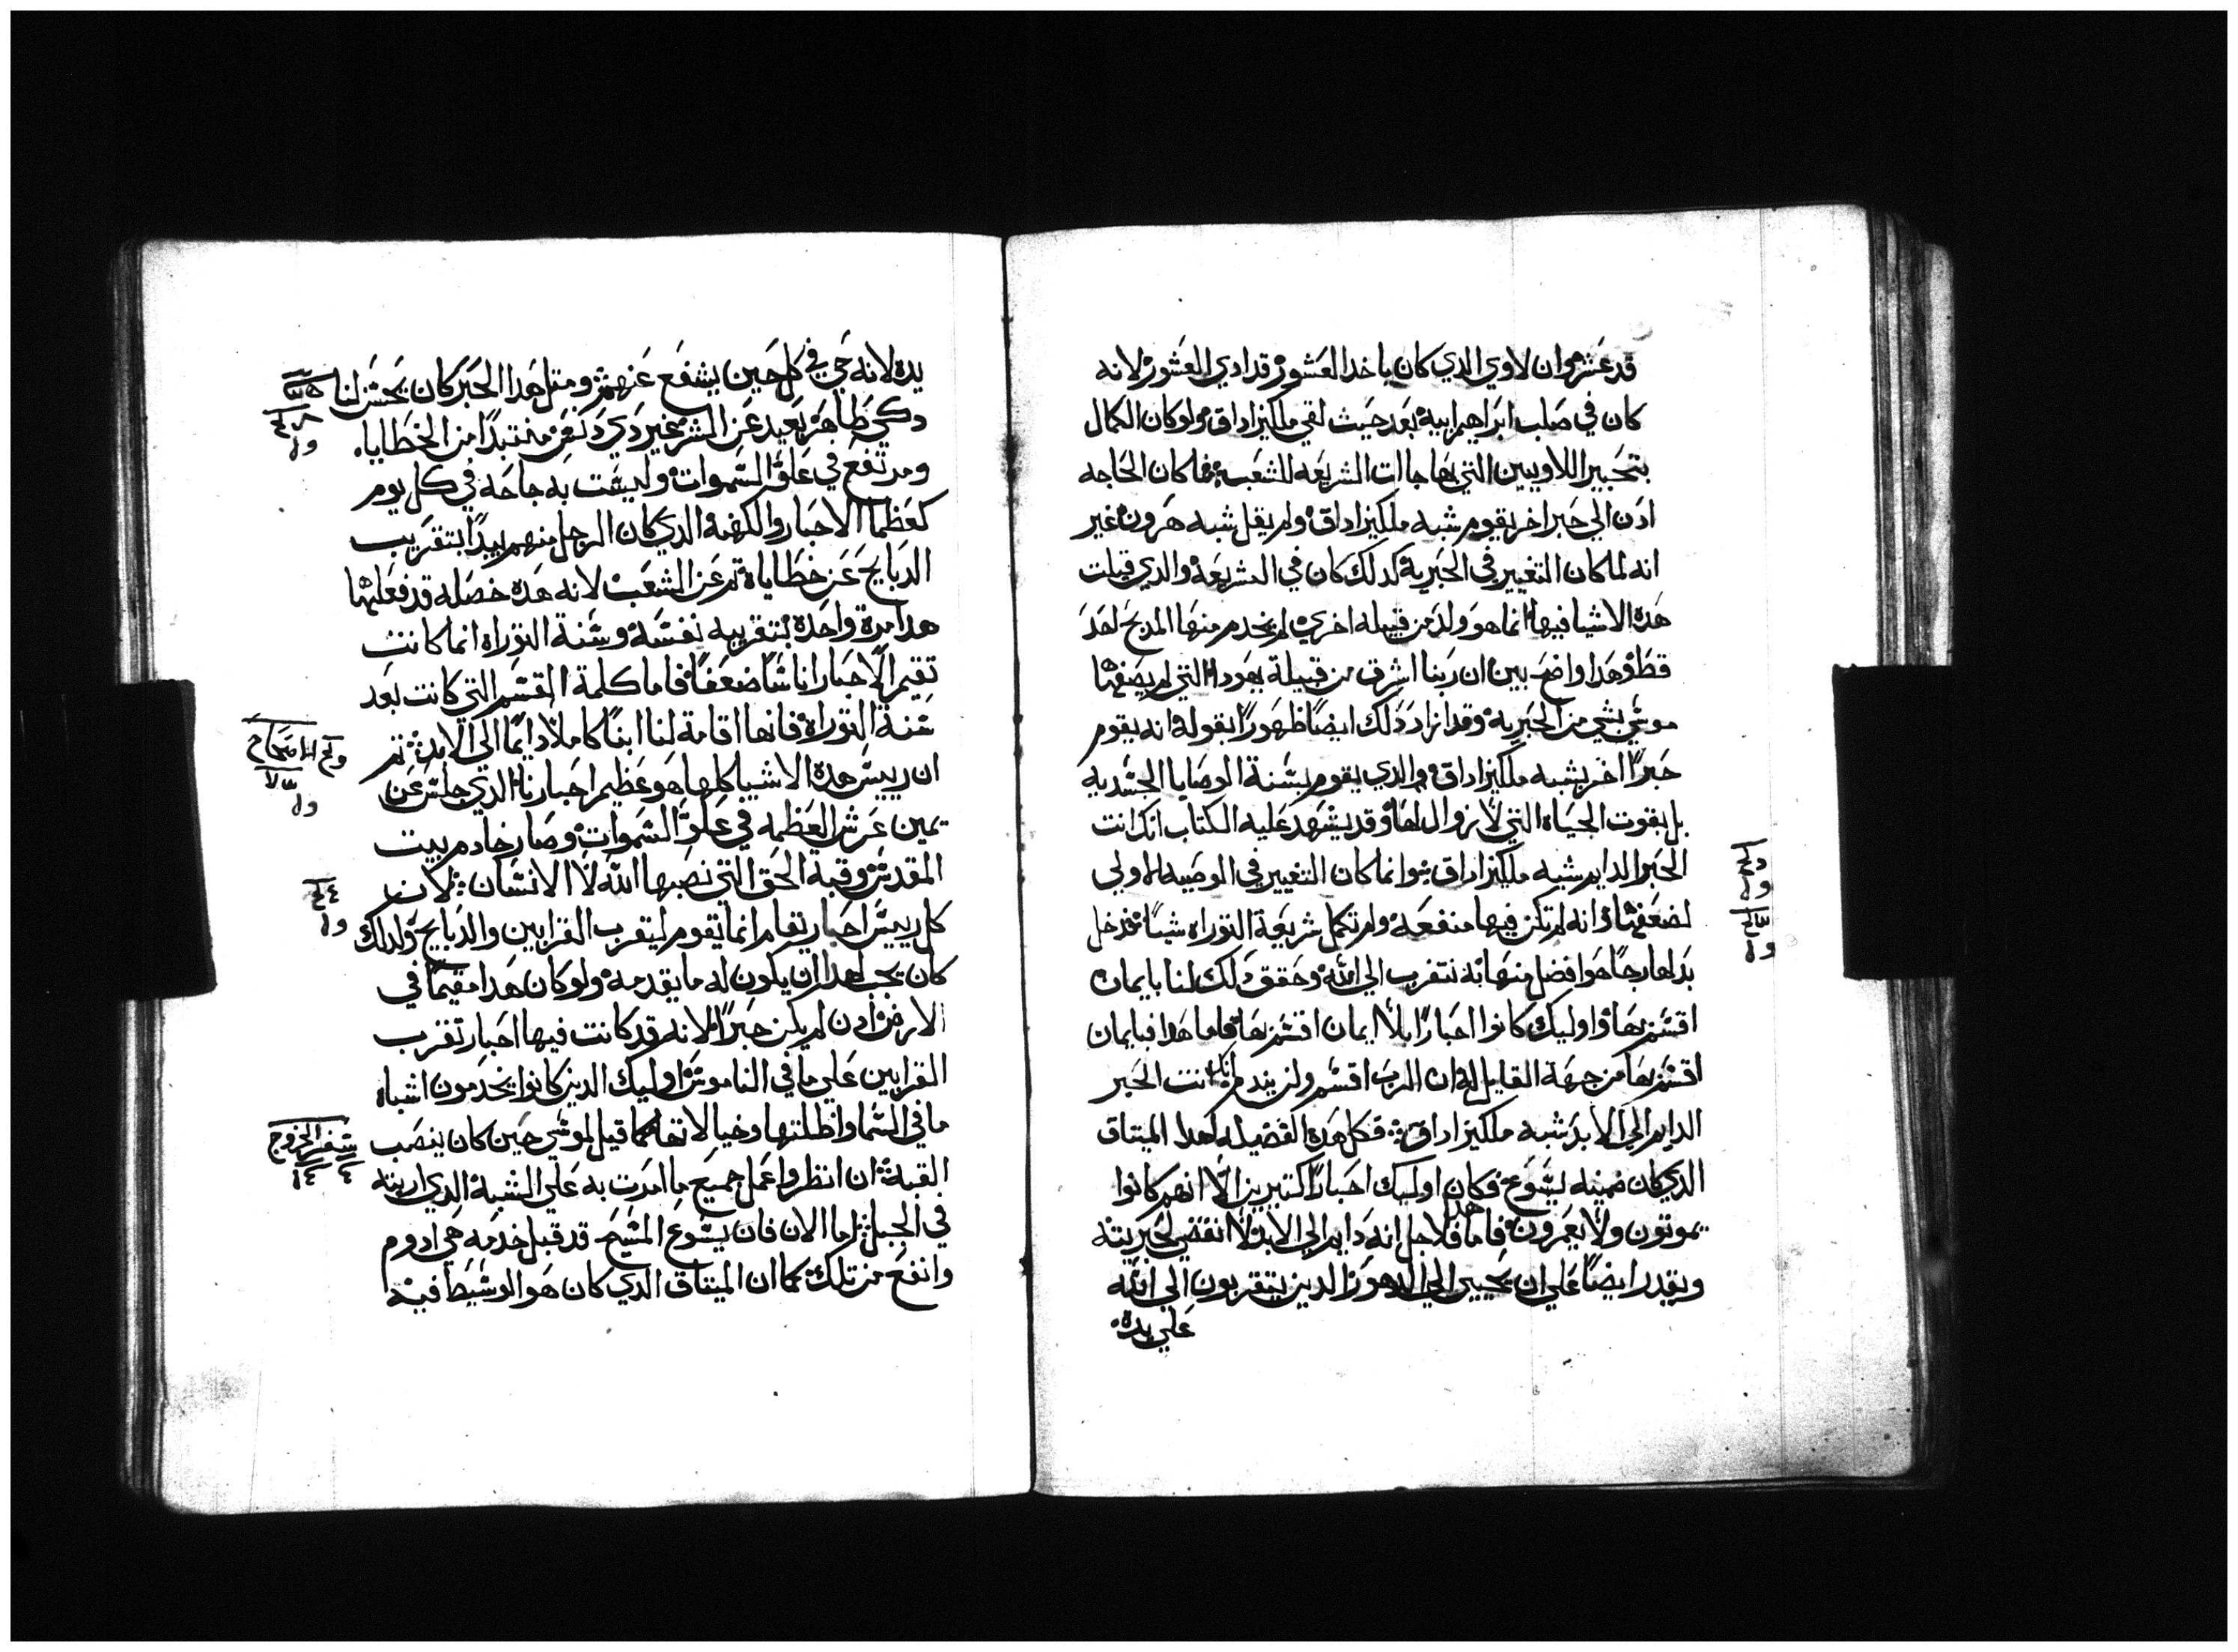 قد عشر وان لاوي الدي كان ياخدا العشور قد ادي العشور لانه
كان في صلب ابراهيم ابيه بعد حيث لقي ملكيزاداق ولو كان الكمال
بتحبير اللاويين التي بها جاات الشريعه للشعب فما كان الحاجه
ادن الي حبر اخر يقوم شبه ملكيزاداق ولم يقل شبه هرون غير
انه لما كان التغيير في الحبرية كدلك كان في الشريعة والدي قيلت
هده الاشيا فيه انما هو ولد من قبيله اخري لم يخدم منها المدبح احد
قط وهدا واضح بين ان ربنا اشرق من قبيلة يهودا التي لم يصفها
موسي بشي من الحبرية وقد ازداد دلك ايضًا ظهورًا بقوله انه يقوم
حبرًا اخر يشبه ملكيزاداق والدي يقوم بسنة الوصايا الجسديه
بل بقوت الحياة التي لا زوال لها وقد يشهد عليه الكتاب انك انت
الحبر الدايم شبه ملكيزاداق وانما كان التغيير في الوصيه الاولي
لضعفها وانه لم تكن فيها منفعه ولم تكمل شريعة التوراه شيًا فدخل
بدلها رجًا هو افضل منها به نتقرب الي الله وحقق دلك لنا بايمان
اقسم بها واوليك كانوا احبارًا بلا ايمان اقسم بها فاما هدا فبايمان
اقسم بها من جهة القايل له ان الرب اقسم ولن يندم انك انت الحبر
الدايم الي الابد شبه ملكيزاداق فكل هده الفضيله لهدا الميتاق
الدي كان ضمينه يسوع وكان اوليك احبارًا كتيرين الا انهم كانوا
يموتون ولا يعمرون فاما هدا فلاجل انه دايم الي الابد ولا انقضي لحبريته
ويقدر ايضًا علي ان يحيي الي الدهور الدين يتقربون الي الله
علي يده
يده لانه حي في كل حين يشفع عنهم ومتل هدا الحبر كان يحسن لنا
دكي طاهر بعيد عن الشر غير دي دنس منتبدًا من الخطايا
ومرتفع في علو السموات وليست به حاجه في كل يوم
كعظما الاحبار والكهنة الدي كان الرجل منهم يبدا بتقريب
الدبايح عن خطاياه تم عن الشعب لانه هده خصله قد فعلها
هدا مرة واحدة بتقريبه نفسه وسنة التوراه انما كانت
تقيم الاحبار اناسًا ضعفًا فاما كلمة القسم التي كانت بعد
سنة التوراة فانها اقامة لنا ابنًا كاملًا دايمًا الي الابد تم
ان رييس هده الاشيا كلها هو عظيم احبارنا الدي جلس عن
يمين عرش العظمه في علو السموات وصار خادم بيت
المقدس وقبة الحق التي نصبها الله لا الانسان لان
كل رييس احبار يقام انما يقوم ليتقرب القرابين والدبايح ولدلك
كان يجب لهدا ان يكون له ما يقدمه ولو كان هدا مقيمًا في
الارض ادن لم يكن حبرًا لانه قد كانت فيها احبار تقرب
القرابين علي ما في الناموس اوليك الدين كانوا يخدمون اشباه
ما في السما واظلتها وخيالاتها كما قيل لموسي حين كان ينصب
القبة ان انظر واعمل جميع ما امرت به علي الشبه الدي اريته
في الجبل اما الان فان يسوع المسيح قد قبل خدمه هي ادوم
وانفع من تلك كما ان الميتاق الدي كان هو الوسيط فيه
سفر الخروج